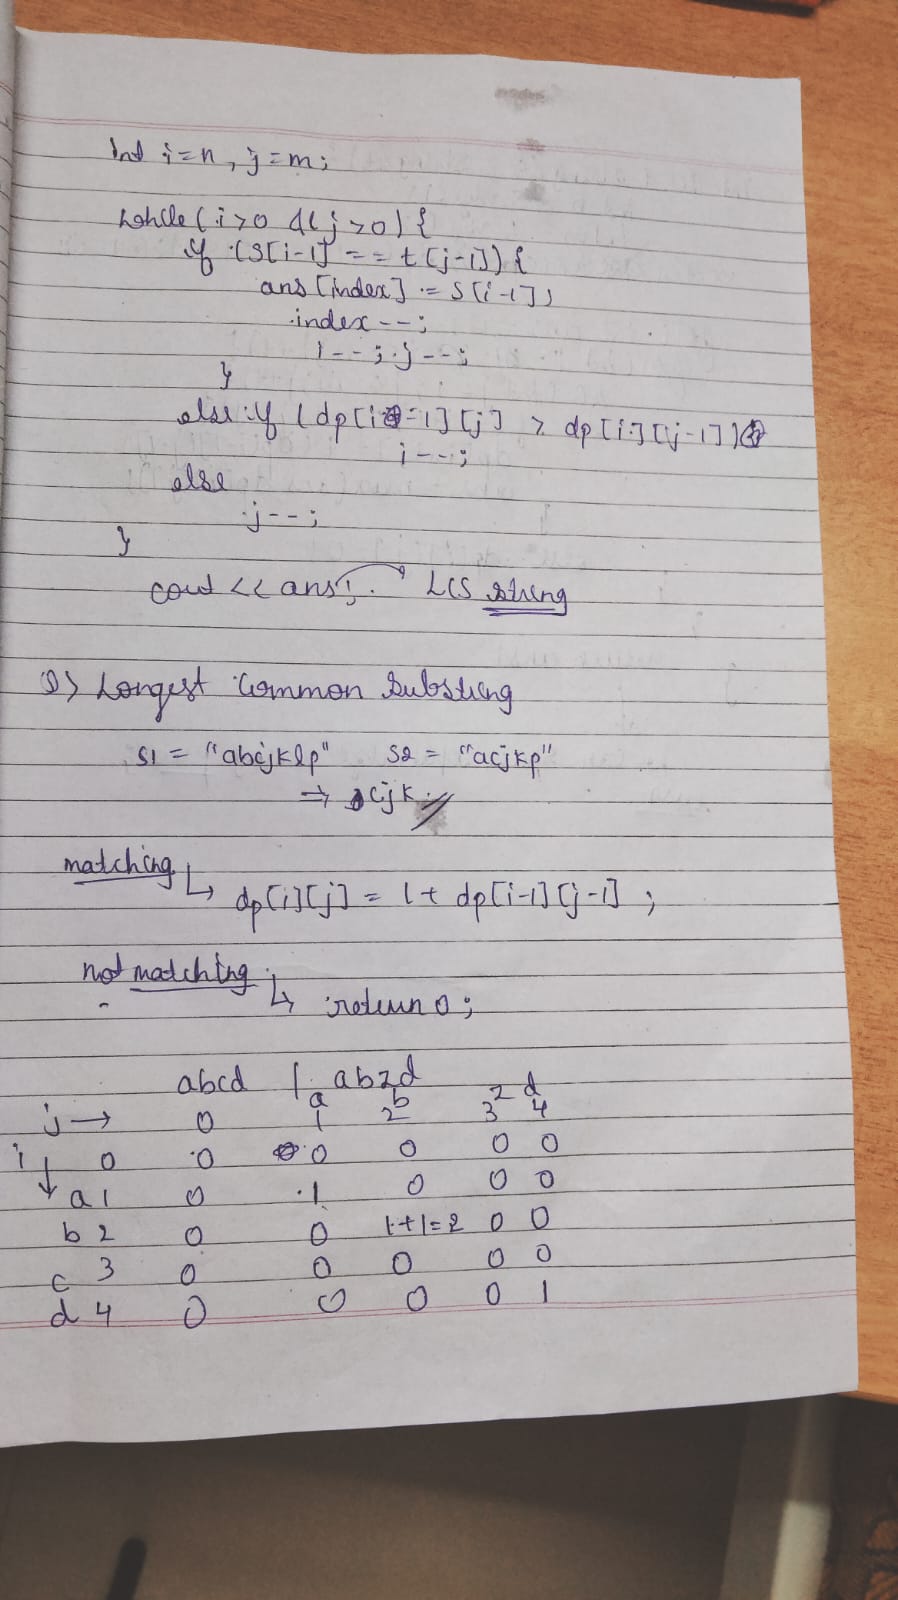 int i=n, j=m;
while(i>0 && j>0){
if (S[i-1] == t[j-1]){
ans[index] = S[i-1];
index--;
i--; j--;
}
else if (dp[i-1][j] > dp[i][j-1])
i--;
else
j--;
}
cout << ans; → LCS string
Q> Longest Common Substring
S1 = "abcjklp" S2 = "acjkp"
⇒ cjk
matching ↳ dp[i][j] = 1+ dp[i-1][j-1] ;
not matching ↳ return 0;
abcd | abzd
a b z d
j → 0 1 2 3 4
i ↓ 0 0 0 0 0 0
a 1 0 1 0 0 0
b 2 0 0 1+1=2 0 0
c 3 0 0 0 0 0
d 4 0 0 0 0 1